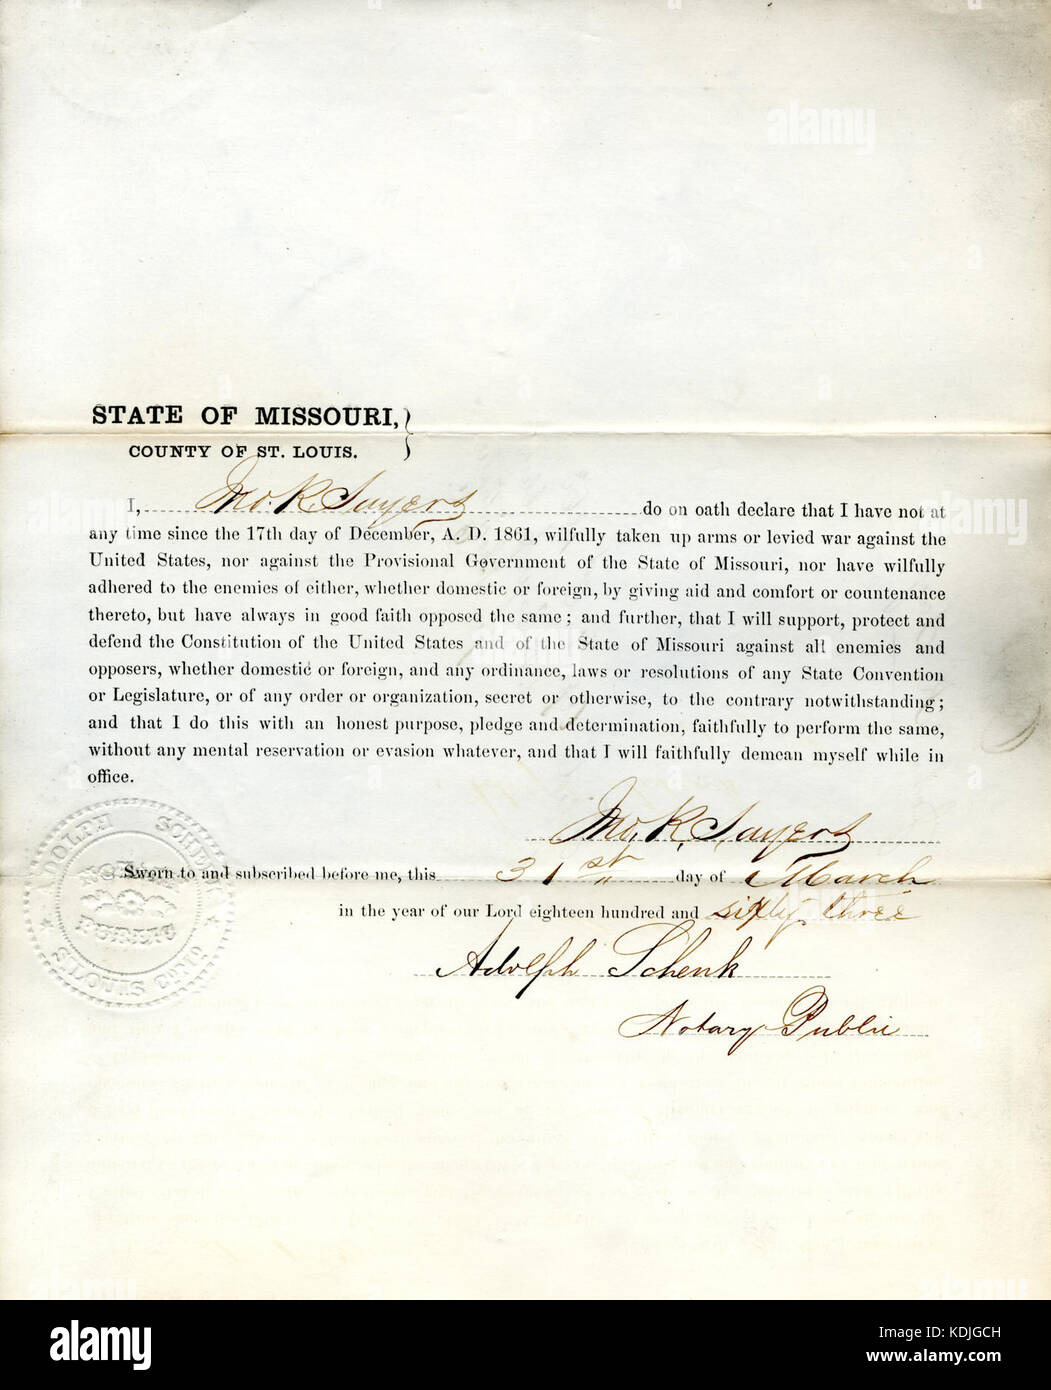 STATE OF MISSOURI,
COUNTY OF ST. LOUIS.
I, Jno. K. Sayers do on oath declare that I have not at
any time since the 17th day of December, A. D. 1861, wilfully taken up arms or levied war against the
United States, nor against the Provisional Government of the State of Missouri, nor have wilfully
adhered to the enemies of either, whether domestic or foreign, by giving aid and comfort or countenance
thereto, but have always in good faith opposed the same; and further, that I will support, protect and
defend the Constitution of the United States and of the State of Missouri against all enemies and
opposers, whether domestic or foreign, and any ordinance, laws or resolutions of any State Convention
or Legislature, or of any order or organization, secret or otherwise, to the contrary notwithstanding;
and that I do this with an honest purpose, pledge and determination, faithfully to perform the same,
without any mental reservation or evasion whatever, and that I will faithfully demean myself while in
office.
Jno. K. Sayers
Sworn to and subscribed before me, this 31st day of March
in the year of our Lord eighteen hundred and sixty three
Adolph Schenk
Notary Public
ADOLPH SCHENK
NOTARY
PUBLIC
ST LOUIS CO MO
alamy
Image ID: KDJGCH
www.alamy.com